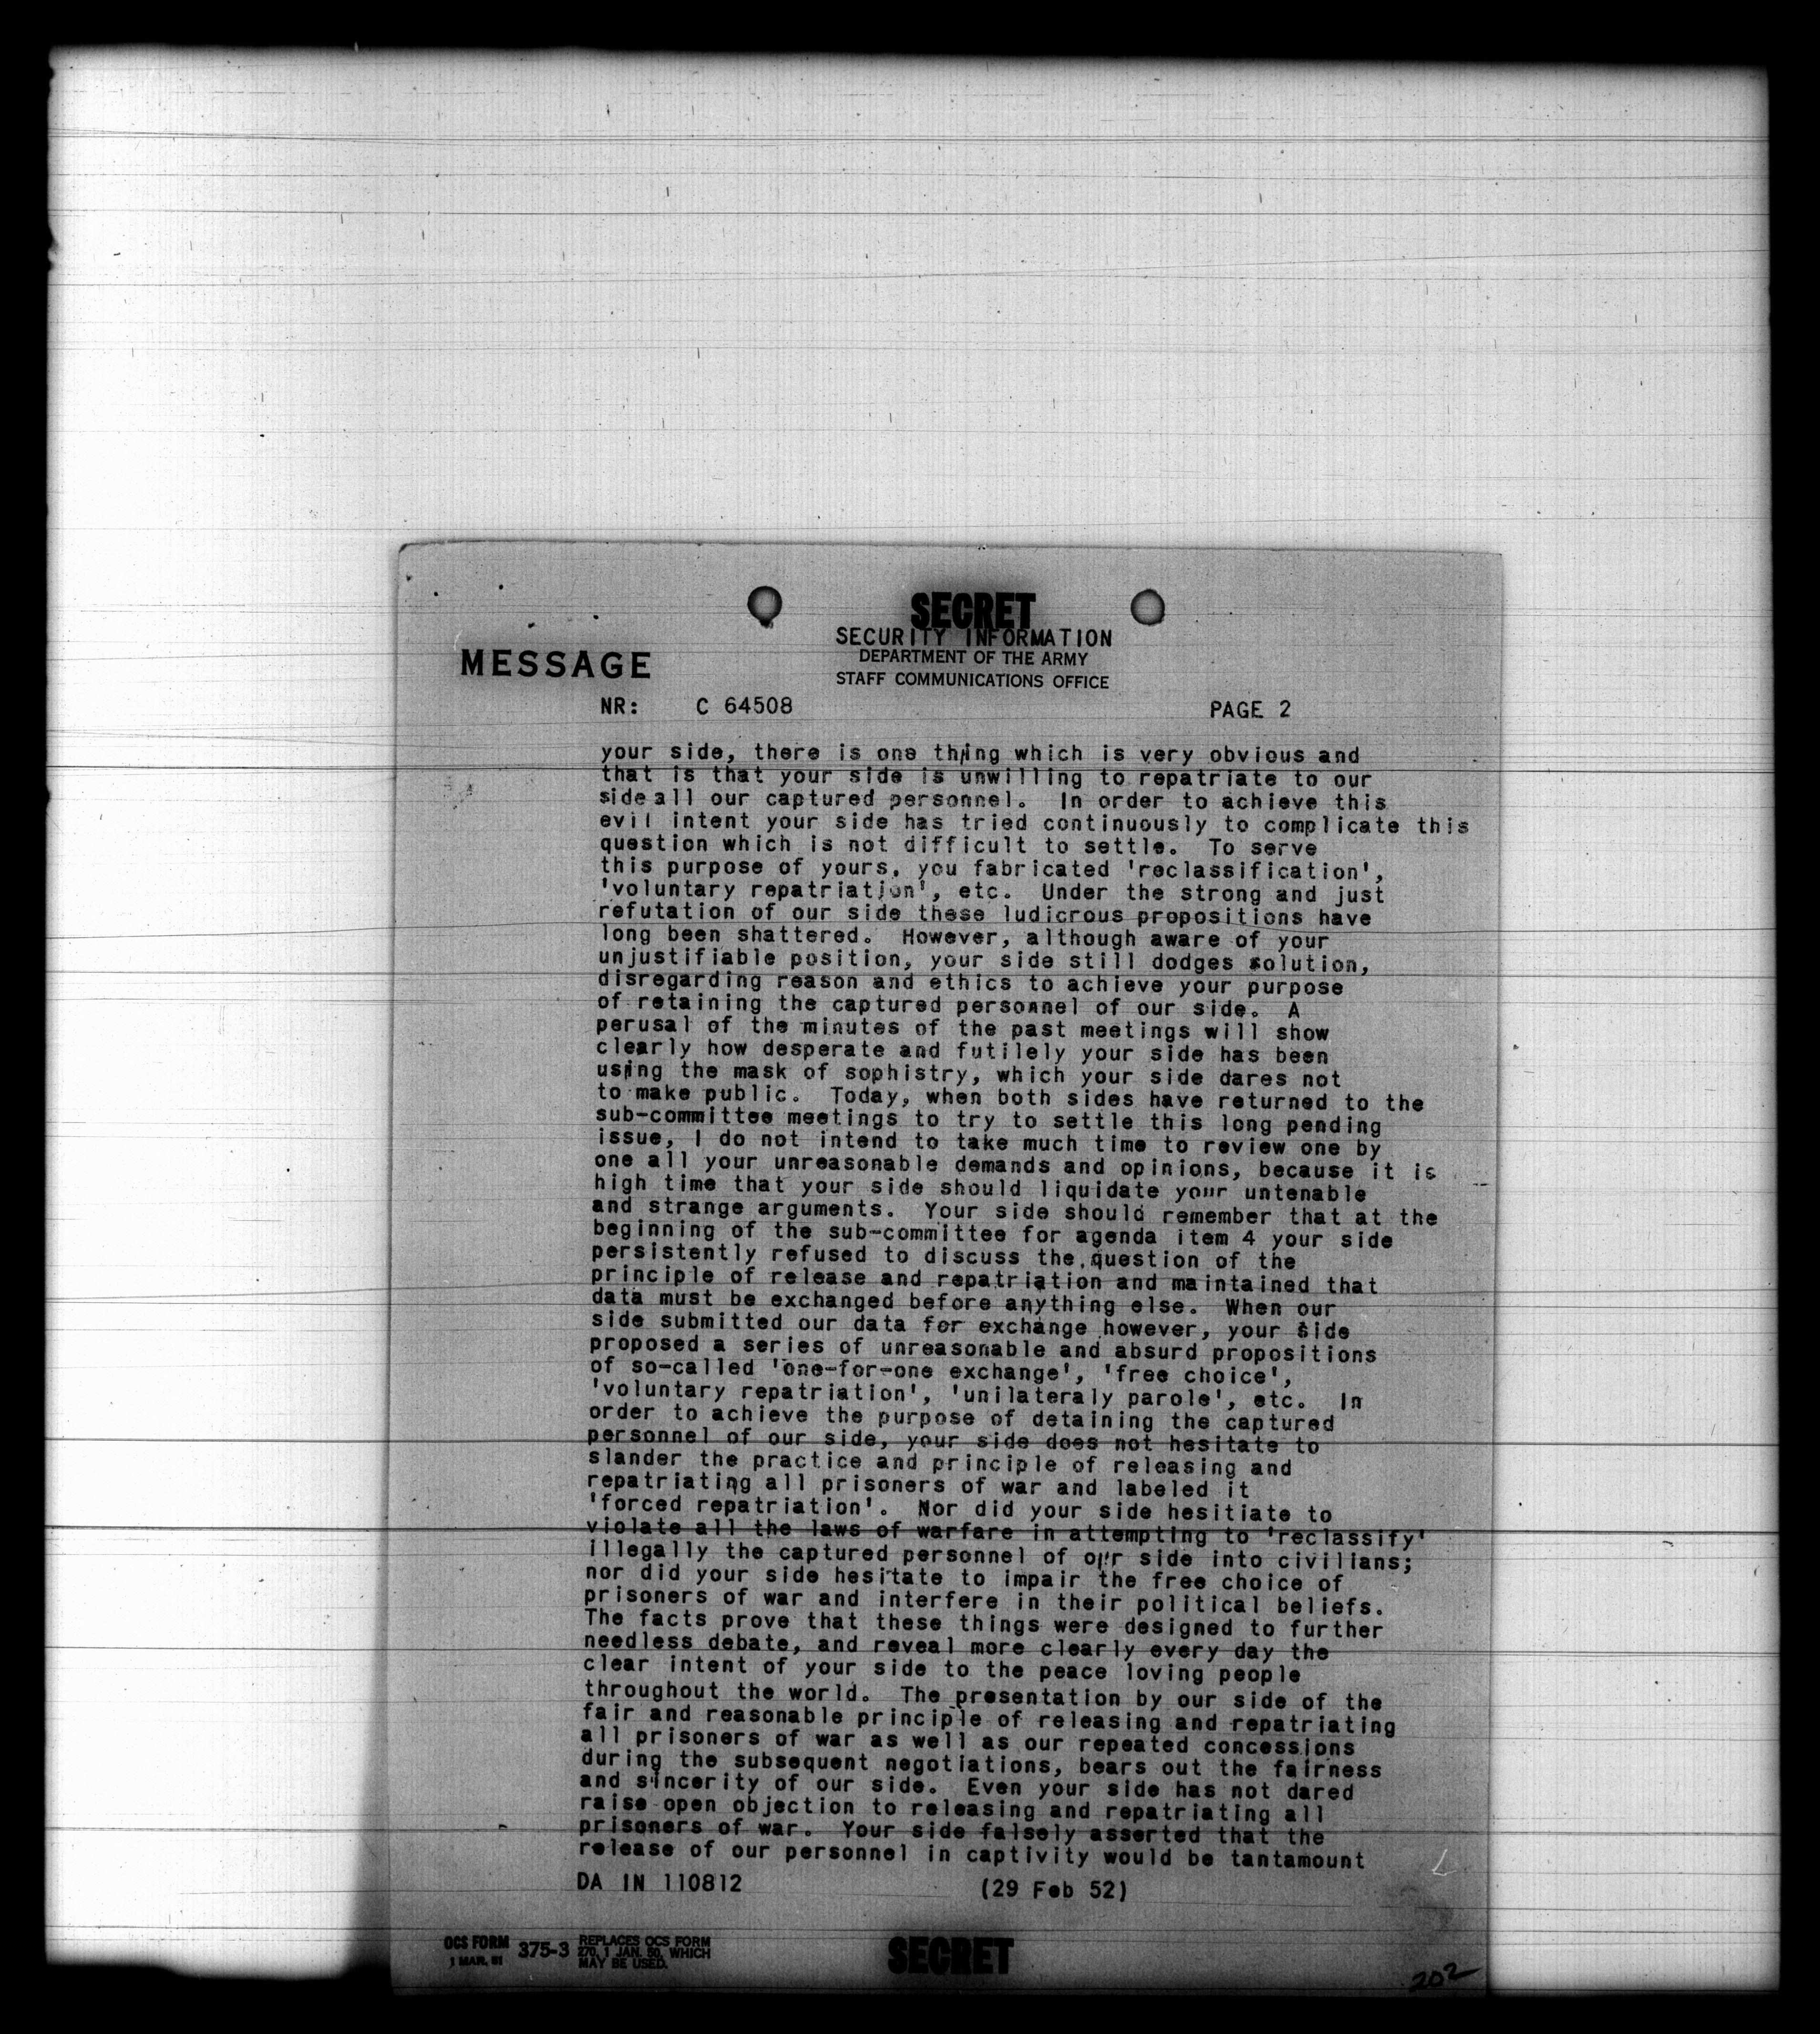 SECRET
SECURITY INFORMATION
DEPARTMENT OF THE ARMY
STAFF COMMUNICATIONS OFFICE
MESSAGE
NR: C 64508 PAGE 2
your side, there is one thing which is very obvious and
that is that your side is unwilling to repatriate to our
side all our captured personnel. In order to achieve this
evil intent your side has tried continuously to complicate this
question which is not difficult to settle. To serve
this purpose of yours, you fabricated 'reclassification',
'voluntary repatriation', etc. Under the strong and just
refutation of our side these ludicrous propositions have
long been shattered. However, although aware of your
unjustifiable position, your side still dodges solution,
disregarding reason and ethics to achieve your purpose
of retaining the captured personnel of our side. A
perusal of the minutes of the past meetings will show
clearly how desperate and futilely your side has been
using the mask of sophistry, which your side dares not
to make public. Today, when both sides have returned to the
sub-committee meetings to try to settle this long pending
issue, I do not intend to take much time to review one by
one all your unreasonable demands and opinions, because it is
high time that your side should liquidate your untenable
and strange arguments. Your side should remember that at the
beginning of the sub-committee for agenda item 4 your side
persistently refused to discuss the question of the
principle of release and repatriation and maintained that
data must be exchanged before anything else. When our
side submitted our data for exchange however, your side
proposed a series of unreasonable and absurd propositions
of so-called 'one-for-one exchange', 'free choice',
'voluntary repatriation', 'unilateraly parole', etc. In
order to achieve the purpose of detaining the captured
personnel of our side, your side does not hesitate to
slander the practice and principle of releasing and
repatriating all prisoners of war and labeled it
'forced repatriation'. Nor did your side hesitiate to
violate all the laws of warfare in attempting to 'reclassify'
illegally the captured personnel of our side into civilians;
nor did your side hesitate to impair the free choice of
prisoners of war and interfere in their political beliefs.
The facts prove that these things were designed to further
needless debate, and reveal more clearly every day the
clear intent of your side to the peace loving people
throughout the world. The presentation by our side of the
fair and reasonable principle of releasing and repatriating
all prisoners of war as well as our repeated concessions
during the subsequent negotiations, bears out the fairness
and sincerity of our side. Even your side has not dared
raise open objection to releasing and repatriating all
prisoners of war. Your side falsely asserted that the
release of our personnel in captivity would be tantamount
DA IN 110812 (29 Feb 52)
OCS FORM 375-3 REPLACES OCS FORM
1 MAR. 51 270, 1 JAN. 50, WHICH
MAY BE USED.
SECRET
202